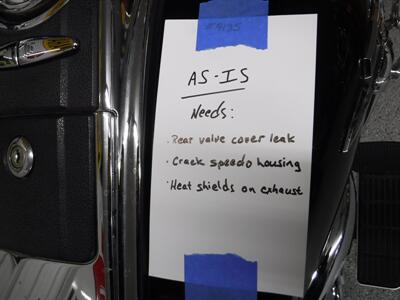 #9135
AS-IS
Needs:
· Rear valve cover leak
· Crack speedo housing
· Heat shields on exhaust